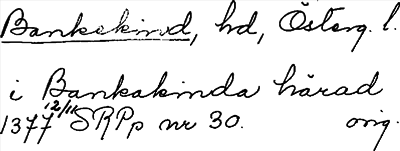 Bankekind, hd, Österg. l.
i Bankakinda härad
1377 12/11 SRPp nr 30. orig.